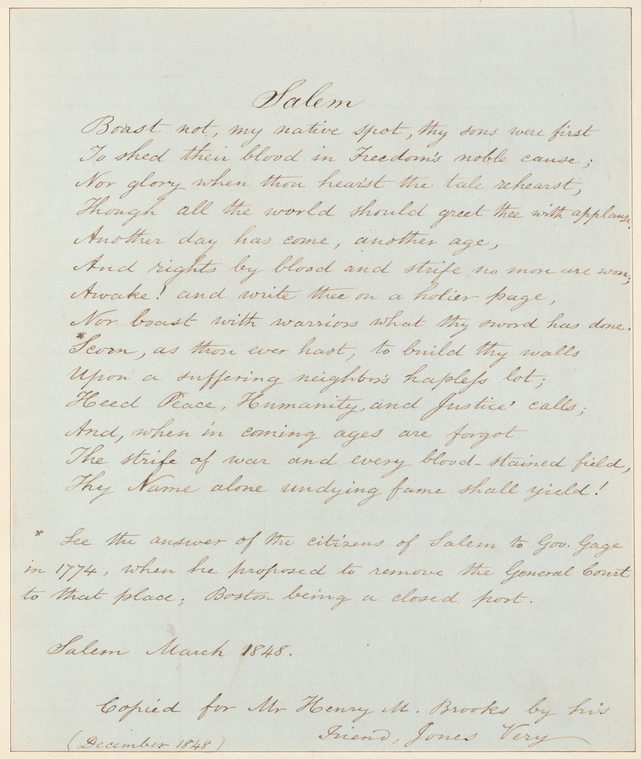 Salem
Boast not, my native spot, thy sons were first
To shed their blood in Freedom's noble cause;
Nor glory when thou hear'st the tale rehearst,
Though all the world should greet thee with applause.
Another day has come, another age,
And rights by blood and strife no more are won;
Awake! and write thee on a holier page,
Nor boast with warriors what thy sword has done.
*Scorn, as thou ever hast, to build thy walls
Upon a suffering neighbor's hapless lot;
Heed Peace, Humanity, and Justice' calls;
And, when in coming ages are forgot
The strife of war and every blood-stained field,
Thy Name alone undying fame shall yield!
* See the answer of the citizens of Salem to Gov. Gage
in 1774, when he proposed to remove the General Court
to that place; Boston being a closed port.
Salem March 1848.
Copied for Mr Henry M. Brooks by his
Friend, Jones Very
(December 1848)